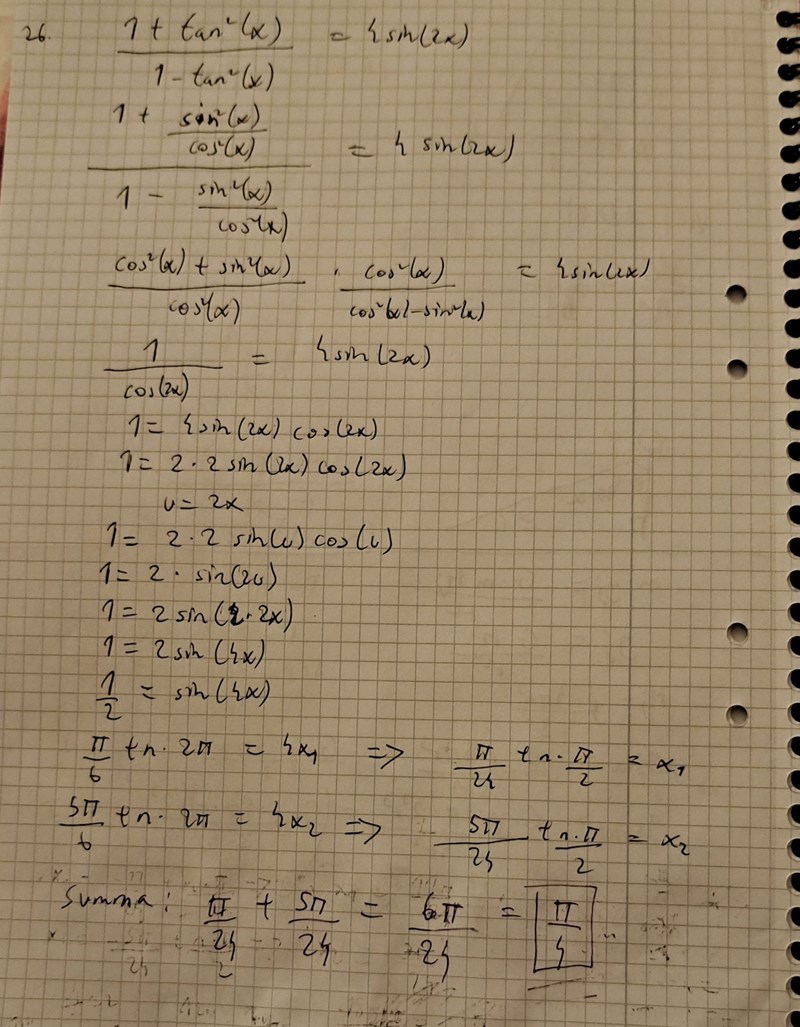 26. (1 + tan²(x))/(1 - tan²(x)) = 4 sin(2x)
(1 + sin²(x)/cos²(x))/(1 - sin²(x)/cos²(x)) = 4 sin(2x)
(cos²(x) + sin²(x))/cos²(x) · cos²(x)/(cos²(x) - sin²(x)) = 4 sin(2x)
1/cos(2x) = 4 sin(2x)
1 = 4 sin(2x) cos(2x)
1 = 2 · 2 sin(2x) cos(2x)
u = 2x
1 = 2 · 2 sin(u) cos(u)
1 = 2 · sin(2u)
1 = 2 sin(2 · 2x)
1 = 2 sin(4x)
1/2 = sin(4x)
π/6 + n · 2π = 4x₁ => π/24 + n · π/2 = x₁
5π/6 + n · 2π = 4x₂ => 5π/24 + n · π/2 = x₂
Summa: π/24 + 5π/24 = 6π/24 = π/4